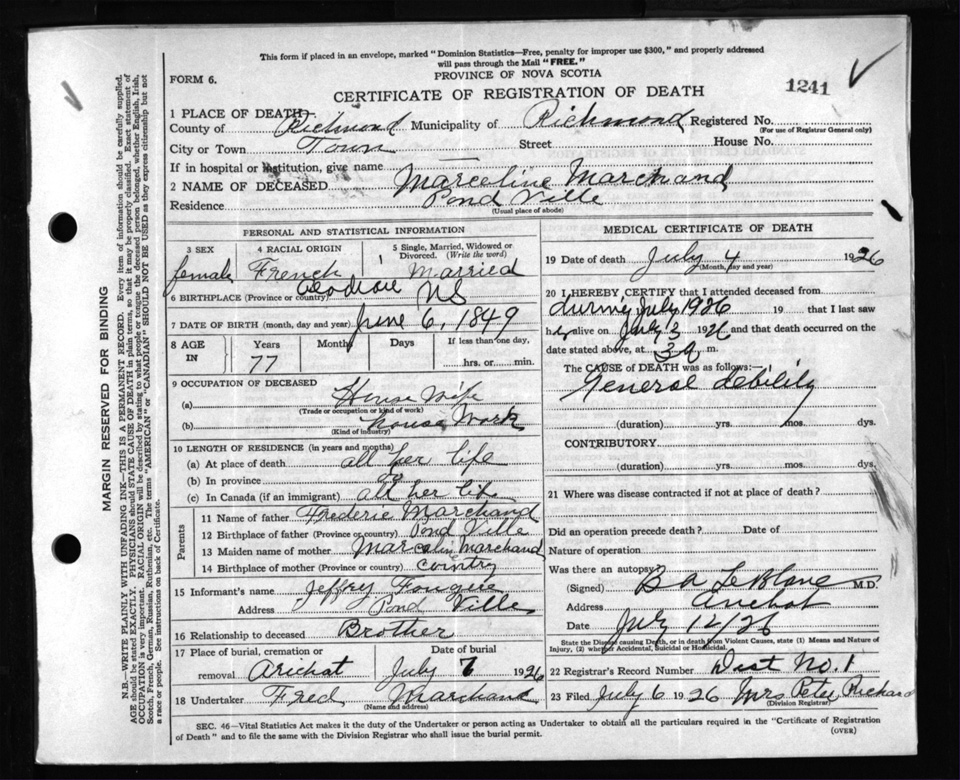 This form if placed in an envelope, marked "Dominion Statistics—Free, penalty for improper use $300," and properly addressed
will pass through the Mail "FREE."
FORM 6.
PROVINCE OF NOVA SCOTIA
CERTIFICATE OF REGISTRATION OF DEATH
1241
1 PLACE OF DEATH
County of Richmond Municipality of Richmond Registered No.
(For use of Registrar General only)
City or Town Town Street House No.
If in hospital or institution, give name
2 NAME OF DECEASED Marceline Marchand
Residence Pond Ville
(Usual place of abode)
PERSONAL AND STATISTICAL INFORMATION
3 SEX 4 RACIAL ORIGIN 5 Single, Married, Widowed or Divorced. (Write the word)
female French Married
6 BIRTHPLACE (Province or country) NS
7 DATE OF BIRTH (month, day and year) June 6, 1849
8 AGE IN Years Months Days If less than one day,
77 hrs. or min.
9 OCCUPATION OF DECEASED
(a) House Wife
(Trade or occupation or kind of work)
(b) House Work
(Kind of industry)
10 LENGTH OF RESIDENCE (in years and months)
(a) At place of death all her life
(b) In province
(c) In Canada (if an immigrant) all her life
Parents
11 Name of father Frederic Marchand
12 Birthplace of father (Province or country) Pond Ville
13 Maiden name of mother Marcelin Marchand
14 Birthplace of mother (Province or country) Country
15 Informant's name Jeffry Fougere
Address Pond Ville
16 Relationship to deceased Brother
17 Place of burial, cremation or removal Arichat
Date of burial July 7 1926
18 Undertaker Fred Marchand
(Name and address)
MEDICAL CERTIFICATE OF DEATH
19 Date of death July 4 1926
(Month, day and year)
20 I HEREBY CERTIFY that I attended deceased from
during July 1926 19 that I last saw
her alive on July 3 1926 and that death occurred on
date stated above, at 3 a m.
The CAUSE of DEATH was as follows:—
General debility
(duration) yrs. mos. dys.
CONTRIBUTORY
(duration) yrs. mos. dys.
21 Where was disease contracted if not at place of death?
Did an operation precede death? Date of
Nature of operation
Was there an autopsy?
(Signed) B A LeBlanc M.D.
Address Arichat
Date July 12/26
State the Disease causing Death, or in death from Violent Causes, state (1) Means and Nature of
Injury, (2) whether Accidental, Suicidal or Homicidal.
22 Registrar's Record Number Dist No. 1
23 Filed July 6 1926 Mrs Peter Richard
(Division Registrar)
SEC. 46—Vital Statistics Act makes it the duty of the Undertaker or person acting as Undertaker to obtain all the particulars required in the "Certificate of Registration
of Death" and to file the same with the Division Registrar who shall issue the burial permit.
(OVER)
MARGIN RESERVED FOR BINDING
N.B.—WRITE PLAINLY WITH UNFADING INK—THIS IS A PERMANENT RECORD. Every item of information should be carefully supplied.
AGE should be stated EXACTLY. PHYSICIANS should STATE CAUSE OF DEATH in plain terms, so that it may be properly classified. Exact statement of
OCCUPATION is very important. RACIAL ORIGIN will be described by stating to what people or tongue the deceased person belonged, whether English, Irish,
Scotch, French, German, Russian, Ruthenian, etc. The terms "AMERICAN" or "CANADIAN" SHOULD NOT BE USED as they express citizenship but not
a race or people. See instructions on back of Certificate.